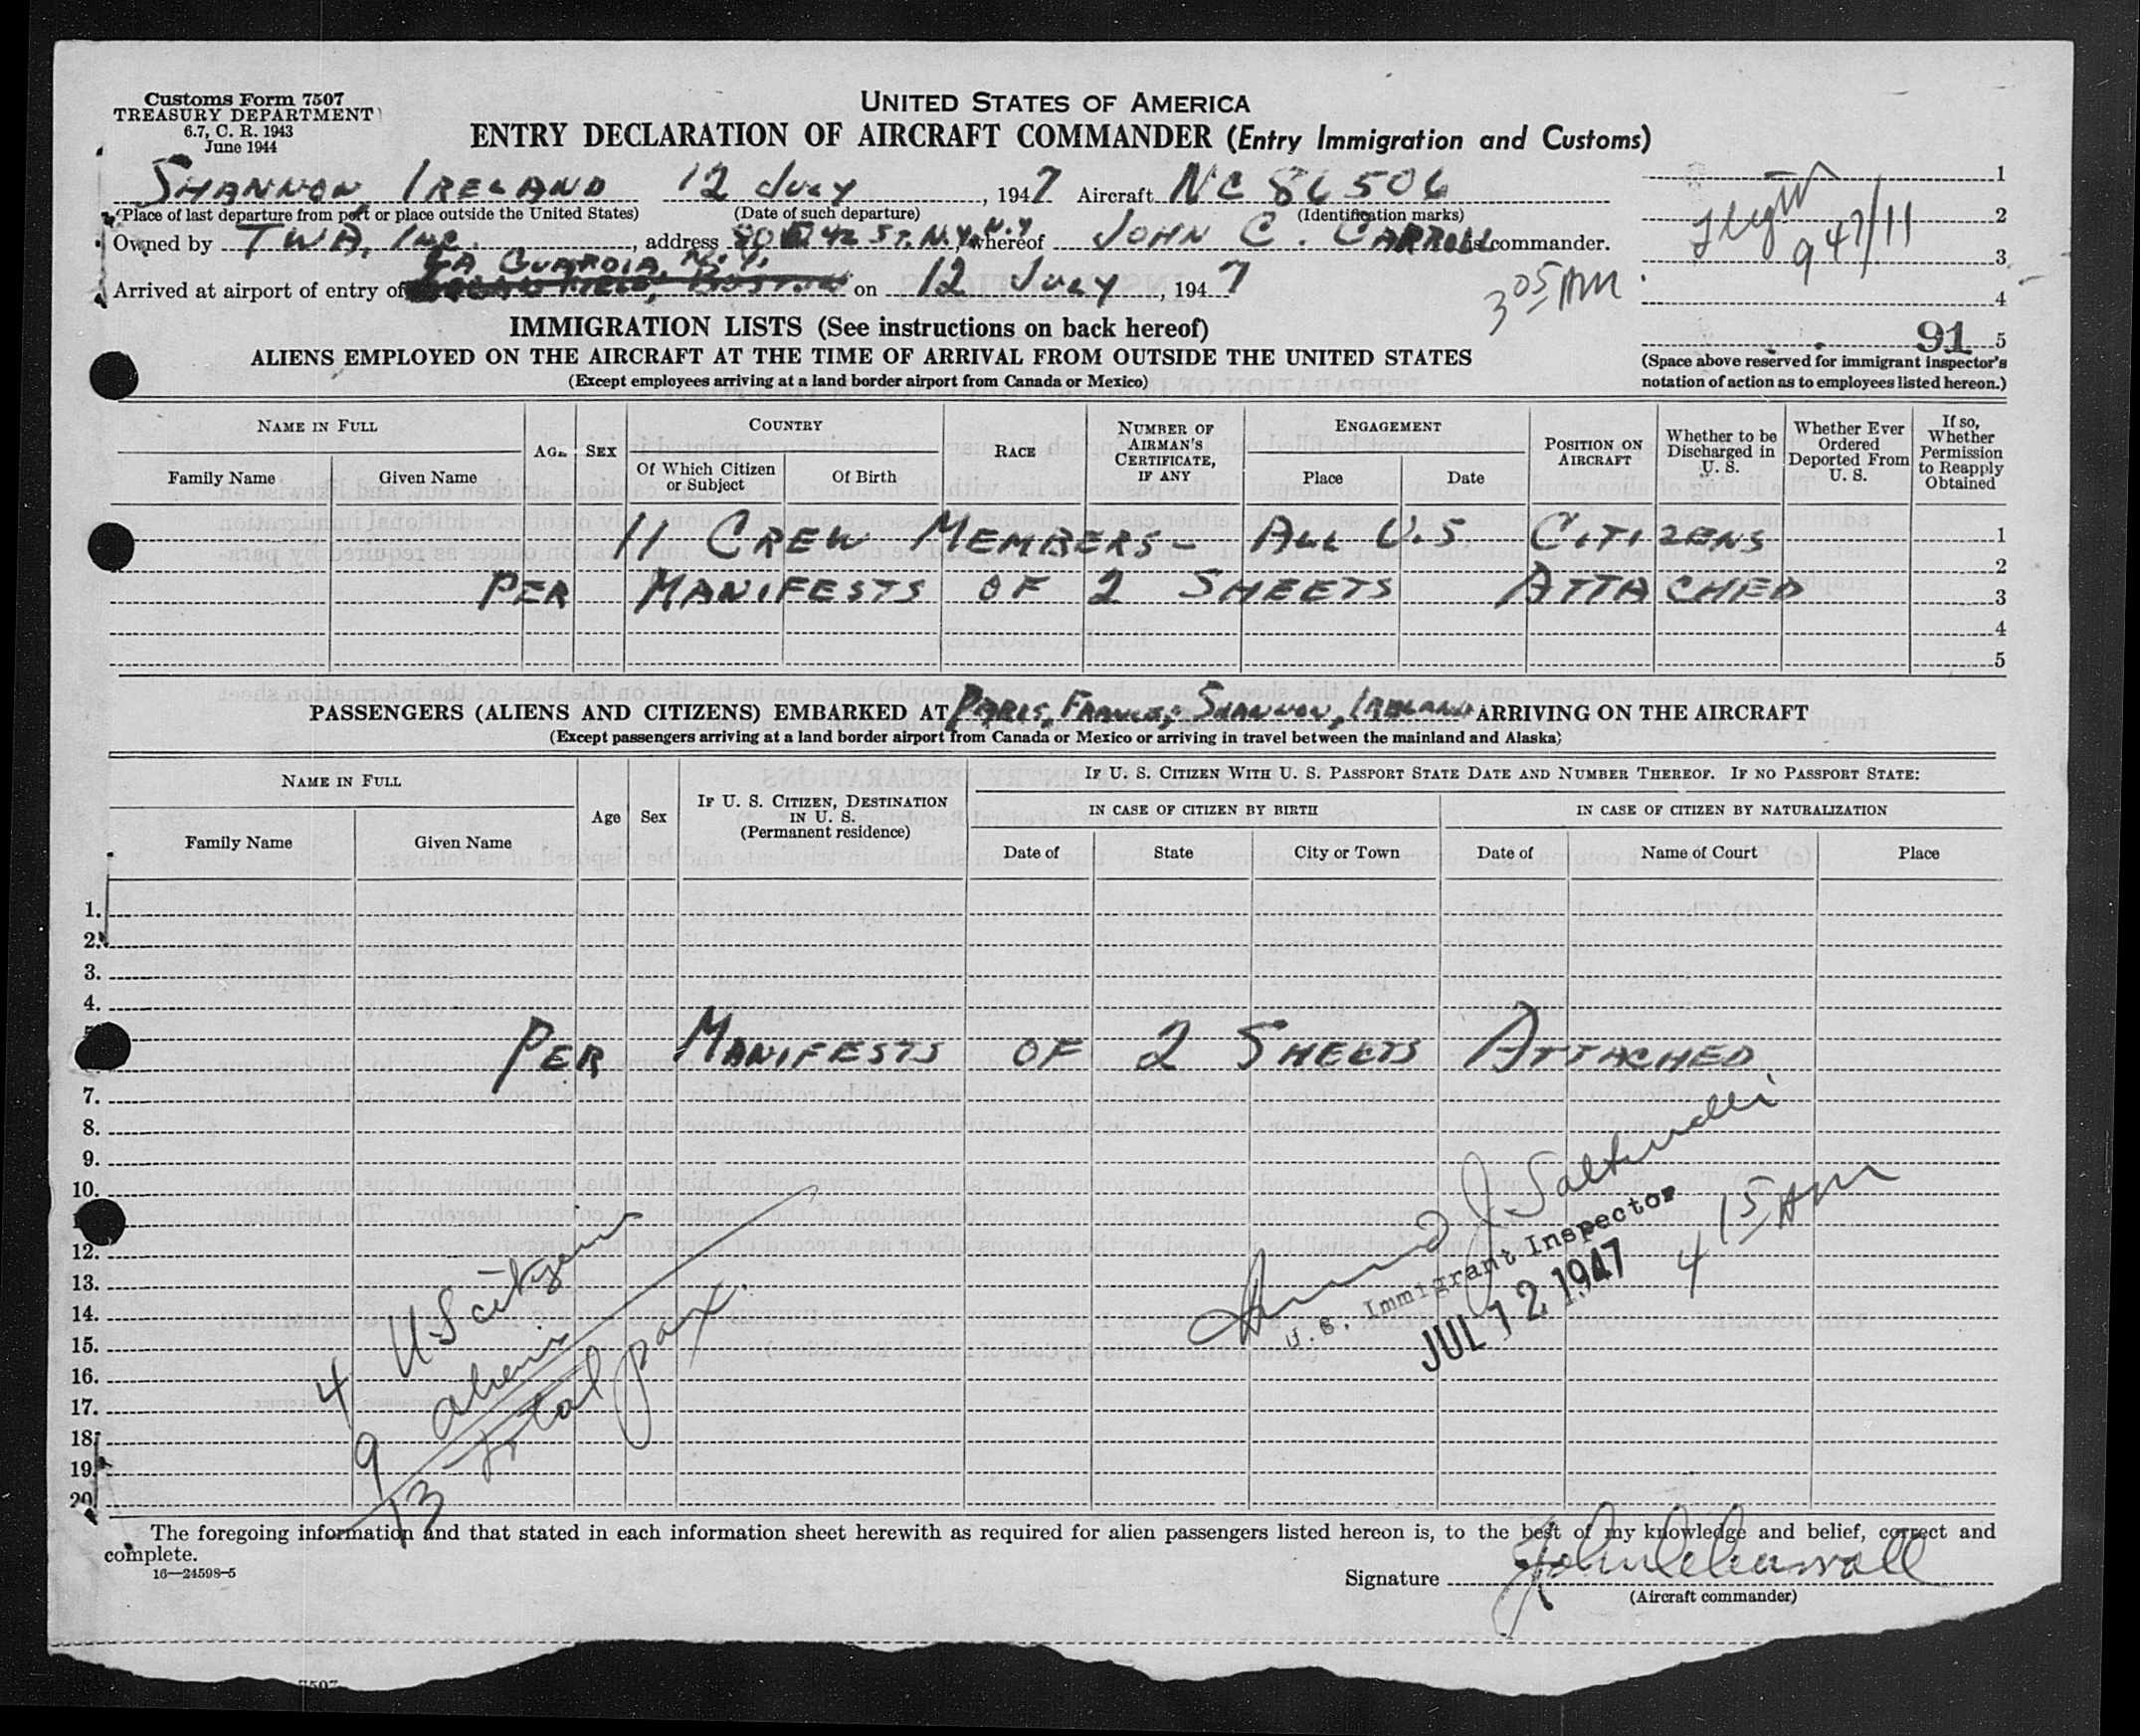 Customs Form 7507
TREASURY DEPARTMENT
6.7, C. R. 1943
June 1944
UNITED STATES OF AMERICA
ENTRY DECLARATION OF AIRCRAFT COMMANDER (Entry Immigration and Customs)
SHANNON, IRELAND 12 JULY, 1947 Aircraft NC 86506
(Place of last departure from port or place outside the United States) (Date of such departure) (Identification marks)
Owned by TWA, INC., address 80 E 42 ST. N.Y., N.Y. whereof JOHN C. CARROLL is commander.
LA GUARDIA, N.Y.
Arrived at airport of entry of on 12 JULY, 1947
305 AM
1
2
947/11
3
4
91 5
(Space above reserved for immigrant inspector's notation of action as to employees listed hereon.)
IMMIGRATION LISTS (See instructions on back hereof)
ALIENS EMPLOYED ON THE AIRCRAFT AT THE TIME OF ARRIVAL FROM OUTSIDE THE UNITED STATES
(Except employees arriving at a land border airport from Canada or Mexico)
NAME IN FULL
Family Name Given Name
AGE SEX
COUNTRY
Of Which Citizen or Subject Of Birth
RACE
NUMBER OF AIRMAN'S CERTIFICATE, IF ANY
ENGAGEMENT
Place Date
POSITION ON AIRCRAFT
Whether to be Discharged in U. S.
Whether Ever Ordered Deported From U. S.
If so, Whether Permission to Reapply Obtained
11 CREW MEMBERS - ALL U.S CITIZENS 1
2
PER MANIFESTS OF 2 SHEETS ATTACHED 3
4
5
PASSENGERS (ALIENS AND CITIZENS) EMBARKED AT PARIS, FRANCE; SHANNON, IRELAND ARRIVING ON THE AIRCRAFT
(Except passengers arriving at a land border airport from Canada or Mexico or arriving in travel between the mainland and Alaska)
NAME IN FULL
Family Name Given Name
Age Sex
IF U. S. CITIZEN, DESTINATION IN U. S.
(Permanent residence)
IF U. S. CITIZEN WITH U. S. PASSPORT STATE DATE AND NUMBER THEREOF. IF NO PASSPORT STATE:
IN CASE OF CITIZEN BY BIRTH IN CASE OF CITIZEN BY NATURALIZATION
Date of State City or Town Date of Name of Court Place
1.
2.
3.
4.
PER MANIFESTS OF 2 SHEETS ATTACHED
7.
8.
9.
10.
12.
13.
14.
15.
16.
17.
18.
19.
20.
4 US citizens
9 aliens
13 total pax.
U. S. Immigrant Inspector
JUL 12 1947
4 15 AM
The foregoing information and that stated in each information sheet herewith as required for alien passengers listed hereon is, to the best of my knowledge and belief, correct and
complete.
16—24598-5
Signature John C Carroll
(Aircraft commander)
7507